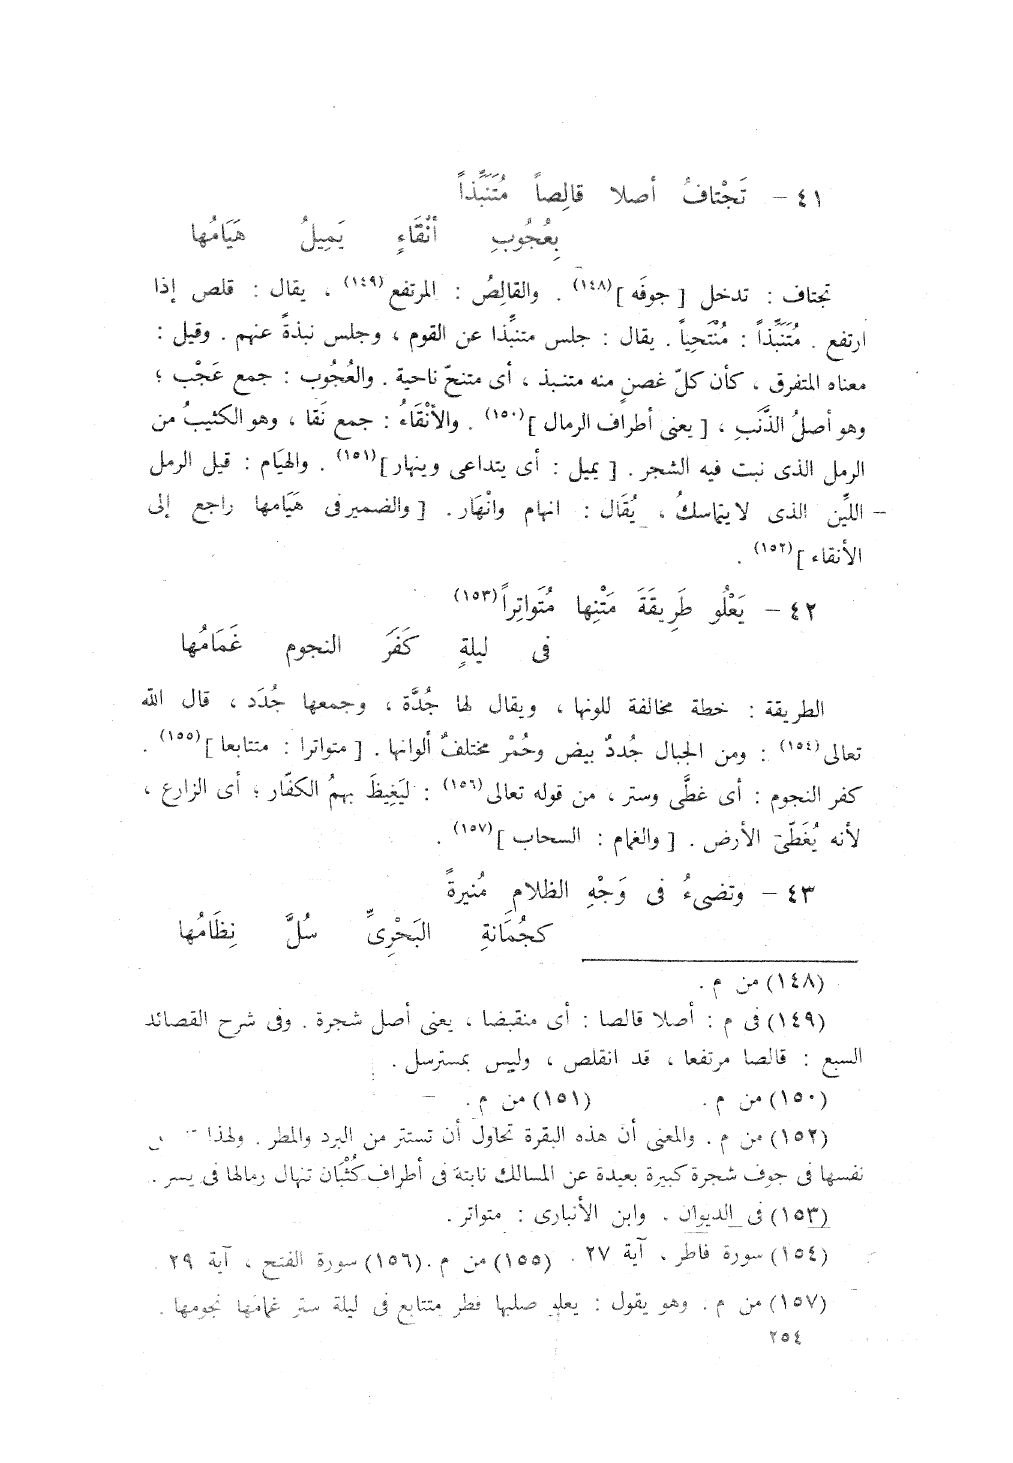 ٤١ – تَجْتافُ أصلا قالِصاً مُتَنَبِّذاً
بِعُجُوبِ أنْقَاءٍ يَمِيلُ هَيَامُها
تجتاف : تدخل [ جوفَه ](١٤٨) . والقَالِصُ : المرتفع(١٤٩) ، يقال : قلص إذا
ارتفع . مُتَنَبِّذاً : مُنْتَحِياً . يقال : جلس متنبِّذا عن القوم ، وجلس نبذةً عنهم . وقيل :
معناه المتفرق ، كأن كلّ غصنٍ منه متنبذ ، أى متنحّ ناحية . والعُجُوب : جمع عَجْب ؛
وهو أصلُ الذَّنَبِ ، [ يعنى أطراف الرمال ](١٥٠) . والأنْقَاءُ : جمع نَقا ، وهو الكثيبُ من
الرمل الذى نبت فيه الشجر . [ يميل : أى يتداعى وينهار ](١٥١) . والهيَام : قيل الرمل
اللَّيِّن الذى لا يتماسكُ ، يُقَال : انهام وانْهَار . [ والضمير فى هَيَامها راجع إلى
الأنقاء ](١٥٢) .
٤٢ – يَعْلُو طَرِيقَةَ مَتْنِها مُتَواتِراً(١٥٣)
فى ليلةٍ كَفَرَ النجوم غَمَامُها
الطريقة : خطة مخالفة للونها ، ويقال لها جُدَّة ، وجمعها جُدَد ، قال الله
تعالى(١٥٤) : ومن الجبال جُددٌ بيض وحُمْر مختلفٌ ألوانها . [ متواترا : متتابعا ](١٥٥) .
كفر النجوم : أى غطَّى وستر ، من قوله تعالى(١٥٦) : ليَغِيظَ بهمُ الكفّار ؛ أى الزارع ،
لأنه يُغَطِّى الأرض . [ والغمام : السحاب ](١٥٧) .
٤٣ – وتضىءُ فى وَجْهِ الظلامِ مُنيرةً
كجُمَانةِ البَحْرِىِّ سُلَّ نِظَامُها
(١٤٨) من م .
(١٤٩) فى م : أصلا قالصا : أى منقبضا ، يعنى أصل شجرة . وفى شرح القصائد
السبع : قالصا مرتفعا ، قد انقلص ، وليس بمسترسل .
(١٥٠) من م . (١٥١) من م .
(١٥٢) من م . والمعنى أن هذه البقرة تحاول أن تستتر من البرد والمطر . ولهذا
نفسها فى جوف شجرة كبيرة بعيدة عن المسالك نابتة فى أطراف كُثْبَان تنهال رمالها فى يسر .
(١٥٣) فى الديوان . وابن الأنبارى : متواتر .
(١٥٤) سورة فاطر ، آية ٢٧ . (١٥٥) من م . (١٥٦) سورة الفتح ، آية ٢٩
(١٥٧) من م . وهو يقول : يعلو صلبها قطر متتابع فى ليلة ستر غمامها نجومها .
٢٥٤